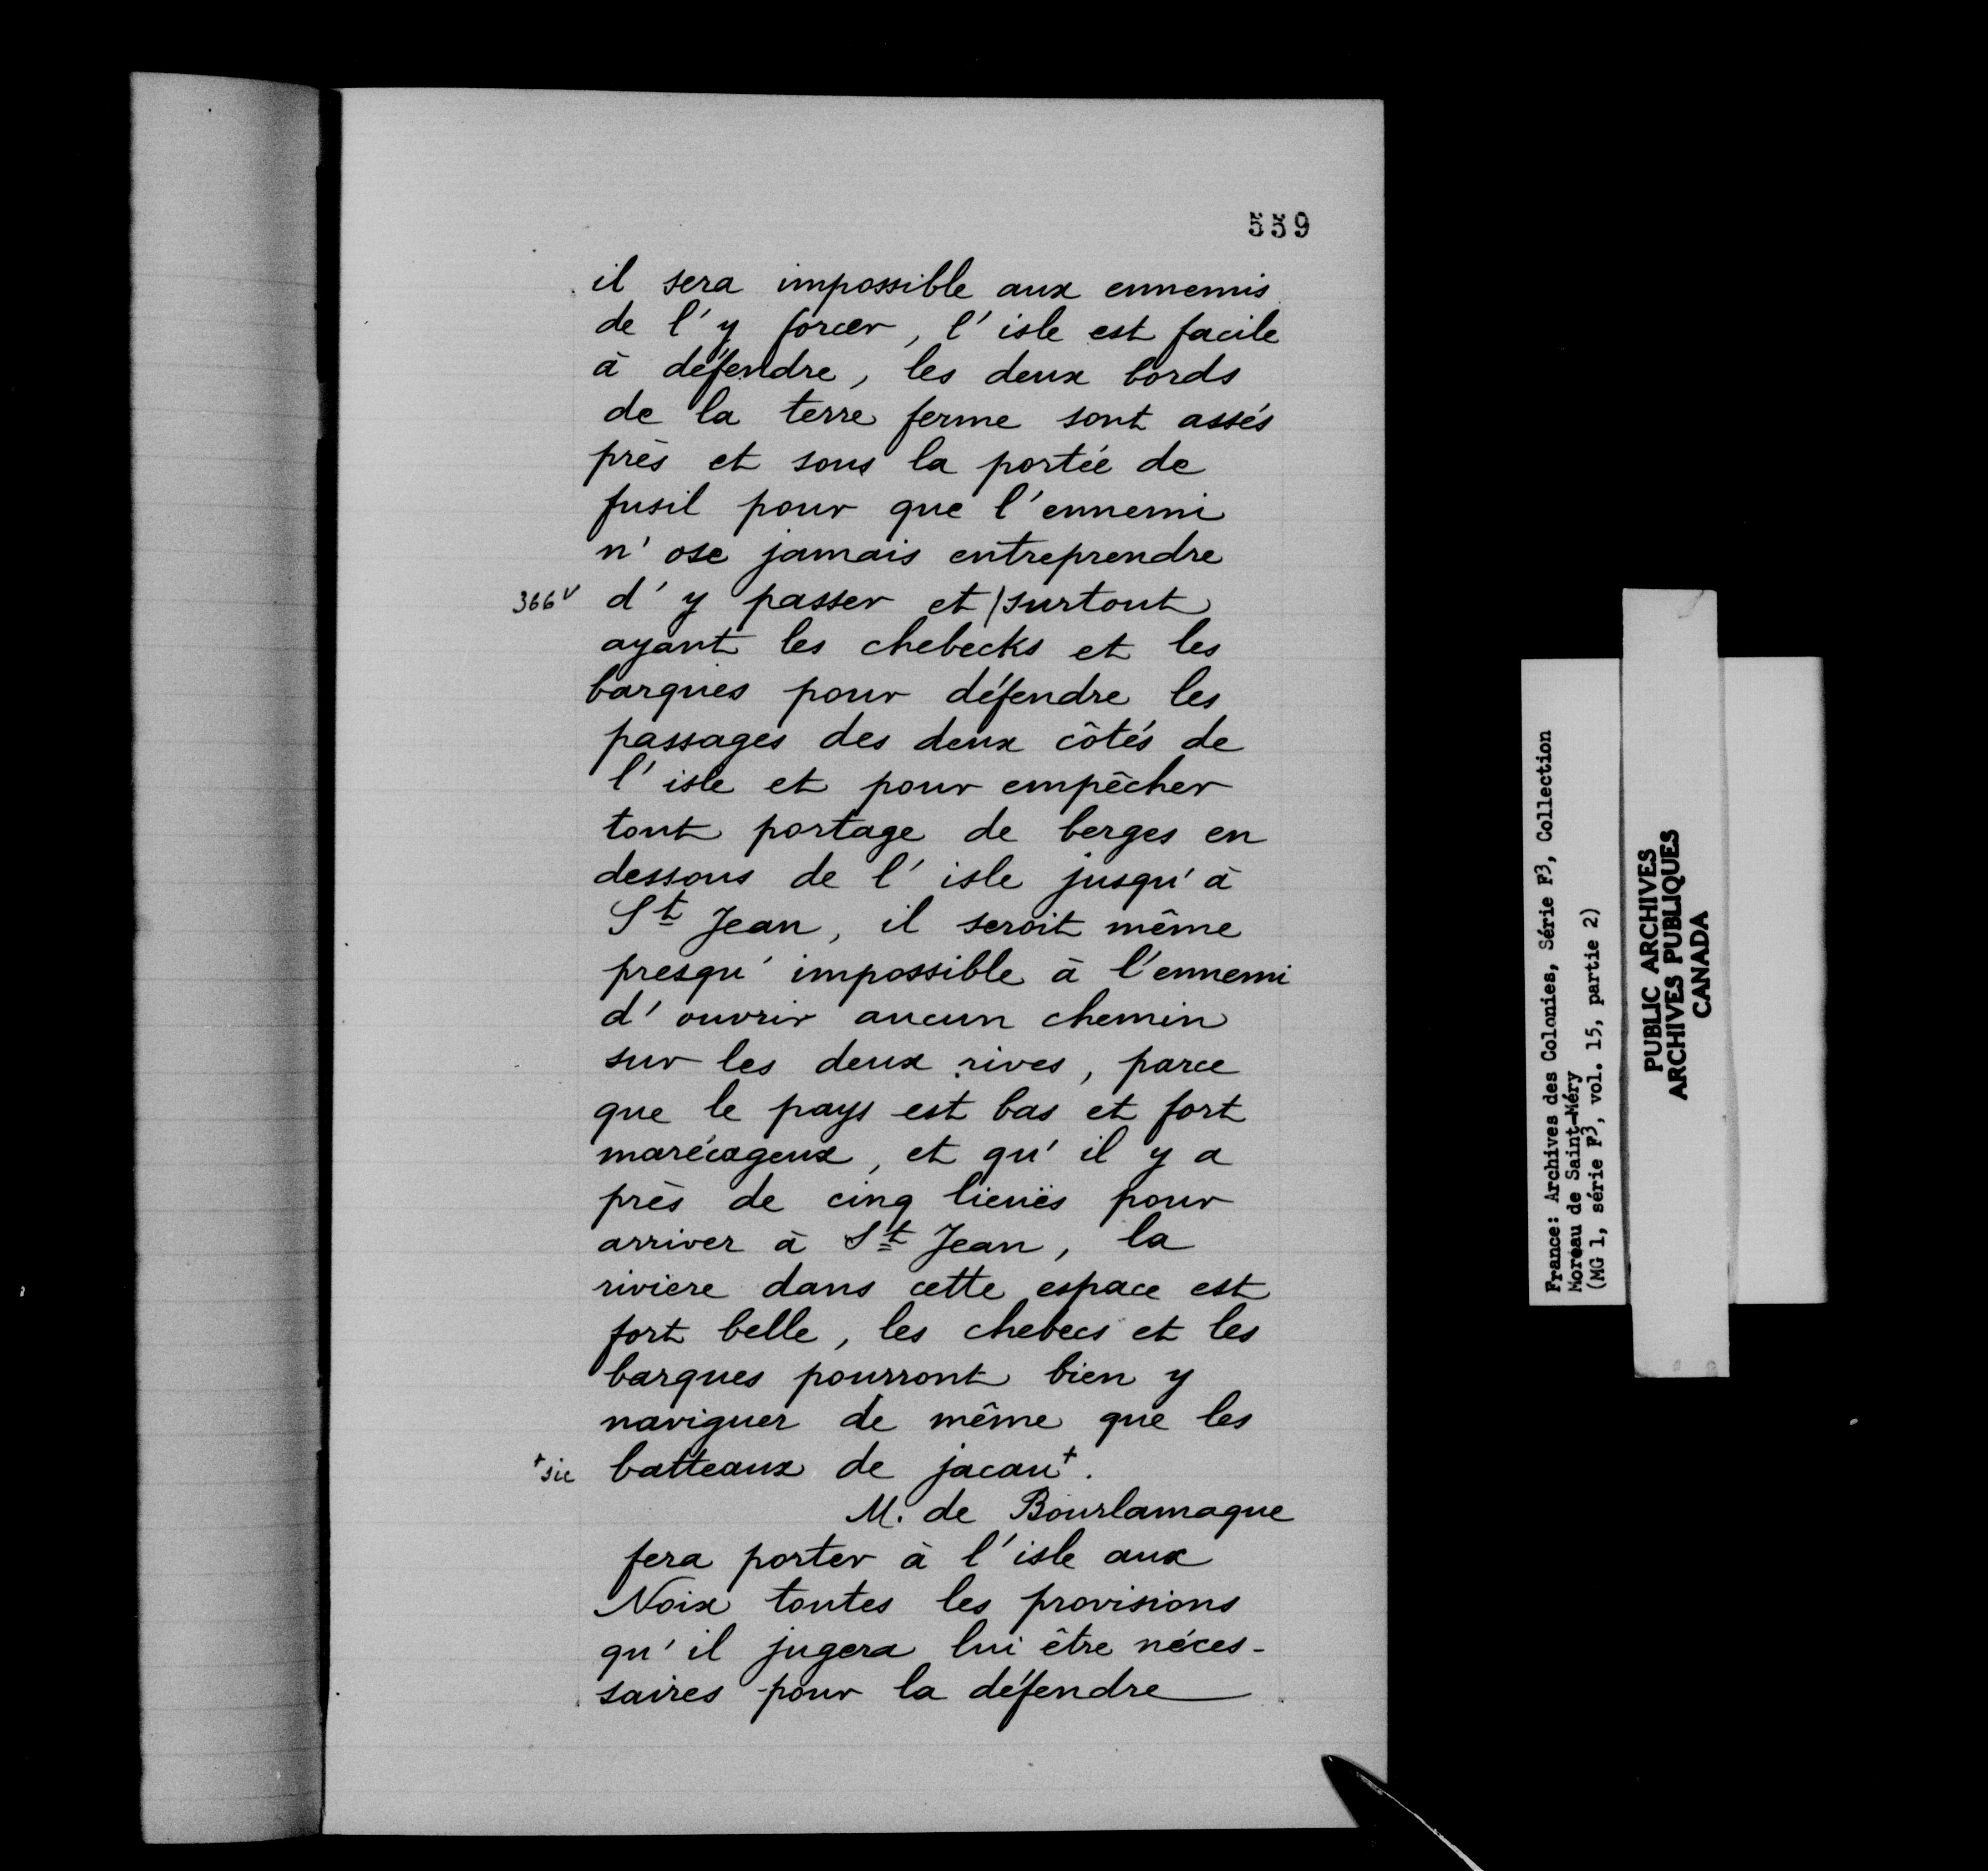 559
il sera impossible aux ennemis
de l'y forcer, l'isle est facile
à défendre, les deux bords
de la terre ferme sont assés
près et sous la portée de
fusil pour que l'ennemi
n'ose jamais entreprendre
366v d'y passer et/surtout
ayant les chebecks et les
barques pour défendre les
passages des deux côtés de
l'isle et pour empêcher
tout portage de berges en
dessous de l'isle jusqu'à
St Jean, il seroit même
presqu'impossible à l'ennemi
d'ouvrir aucun chemin
sur les deux rives, parce
que le pays est bas et fort
marécageux, et qu'il y a
près de cinq lieuës pour
arriver à St Jean, la
riviere dans cette espace est
fort belle, les chebecs et les
barques pourront bien y
naviguer de même que les
+sic batteaux de jacau+.
M. de Bourlamaque
fera porter à l'isle aux
Noix toutes les provisions
qu'il jugera lui être néces-
saires pour la défendre
France: Archives des Colonies, Série F3, Collection
Moreau de Saint-Méry
(MG 1, série F3, vol. 15, partie 2)
PUBLIC ARCHIVES
ARCHIVES PUBLIQUES
CANADA